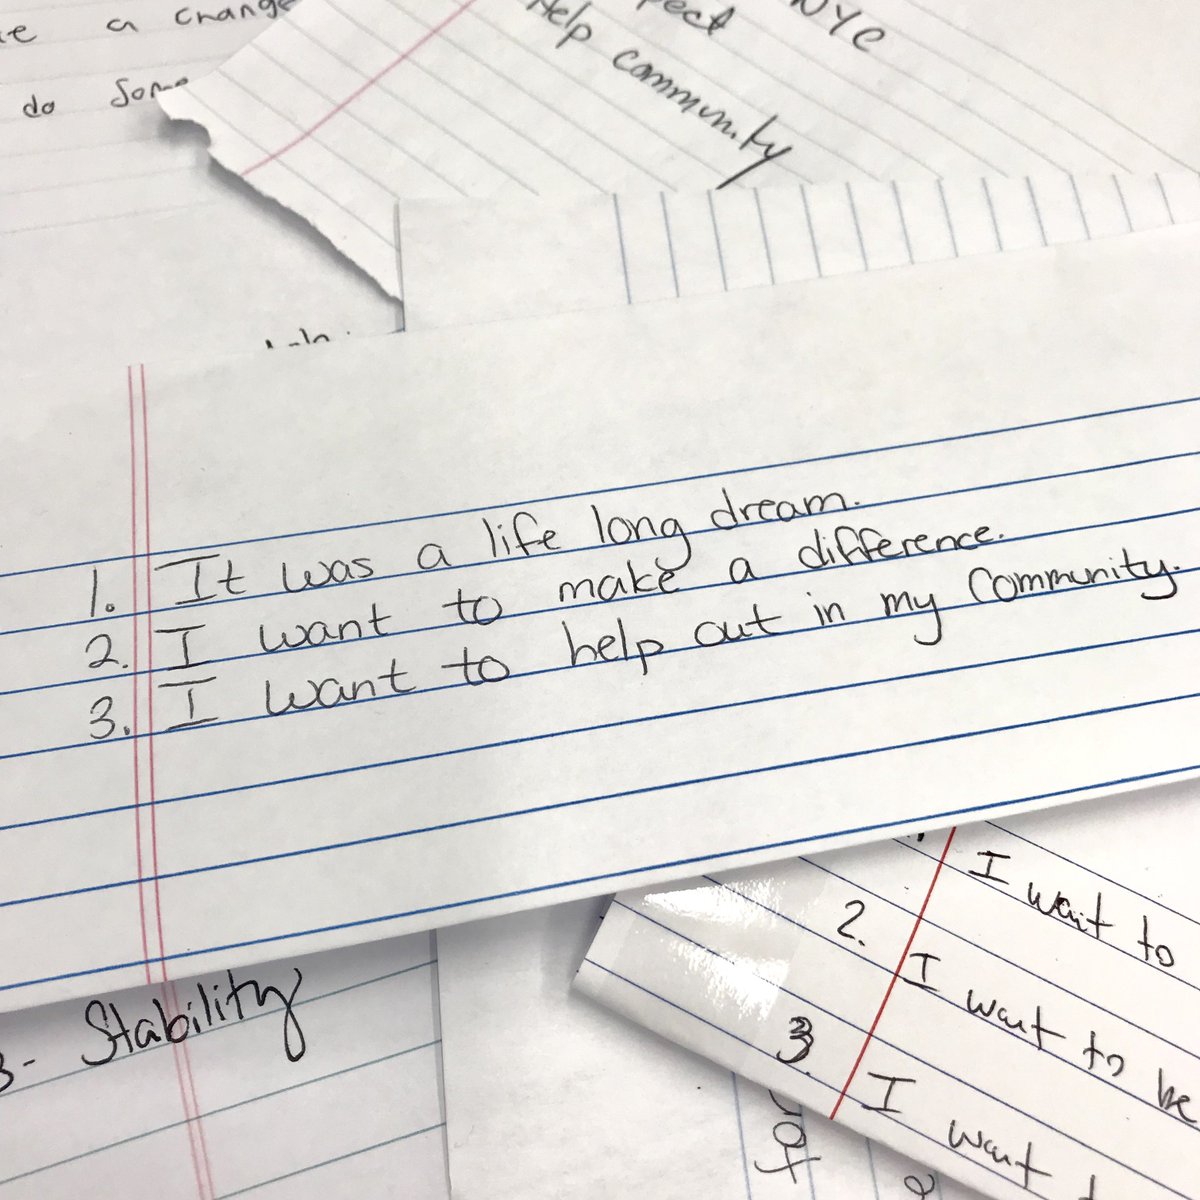 a change
do Some
NYC
Help community
1. It was a life long dream.
2. I want to make a difference.
3. I want to help out in my Community.
3- Stability
I want to
2. I want to be
3. I want